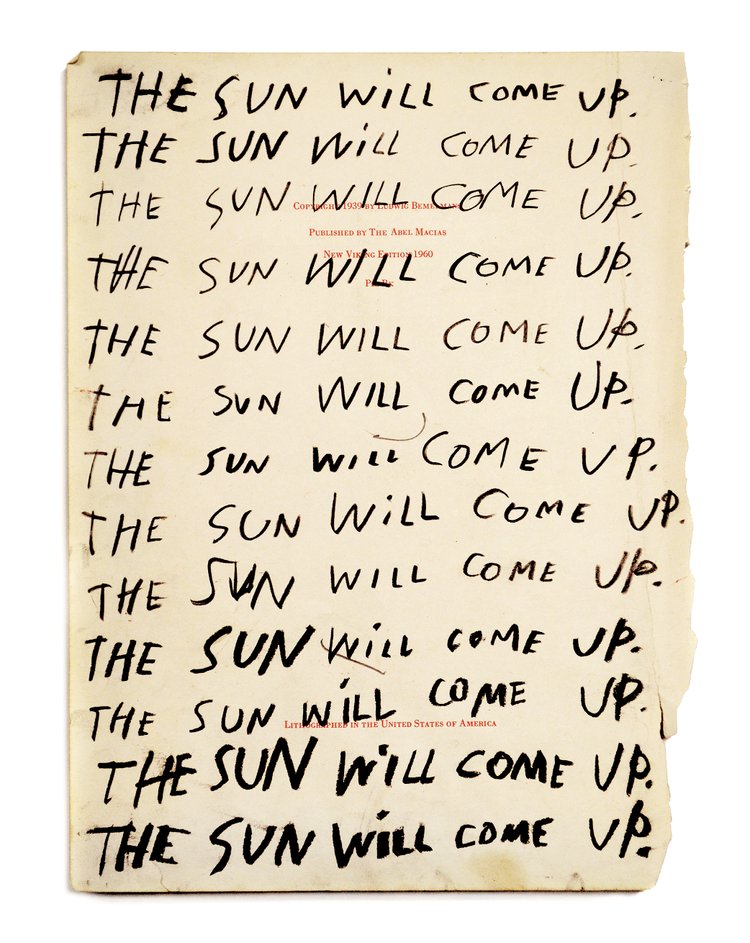 THE SUN WiLL COME UP.
THE SUN WiLL COME UP.
THE SUN WILL COME UP.
Copyright 1939 by Ludwig Bemelmans
Published by The Abel Macias
New Viking Edition 1960
THE SUN WILL COME UP.
THE SUN WILL COME UP.
THE SUN WILL COME UP.
THE SUN WILL COME UP.
THE SUN WiLL COME UP.
THE SUN WILL COME UP.
THE SUN WiLL COME UP.
THE SUN WiLL COME UP.
Lithographed in the United States of America
THE SUN WiLL COME UP.
THE SUN WiLL COME UP.